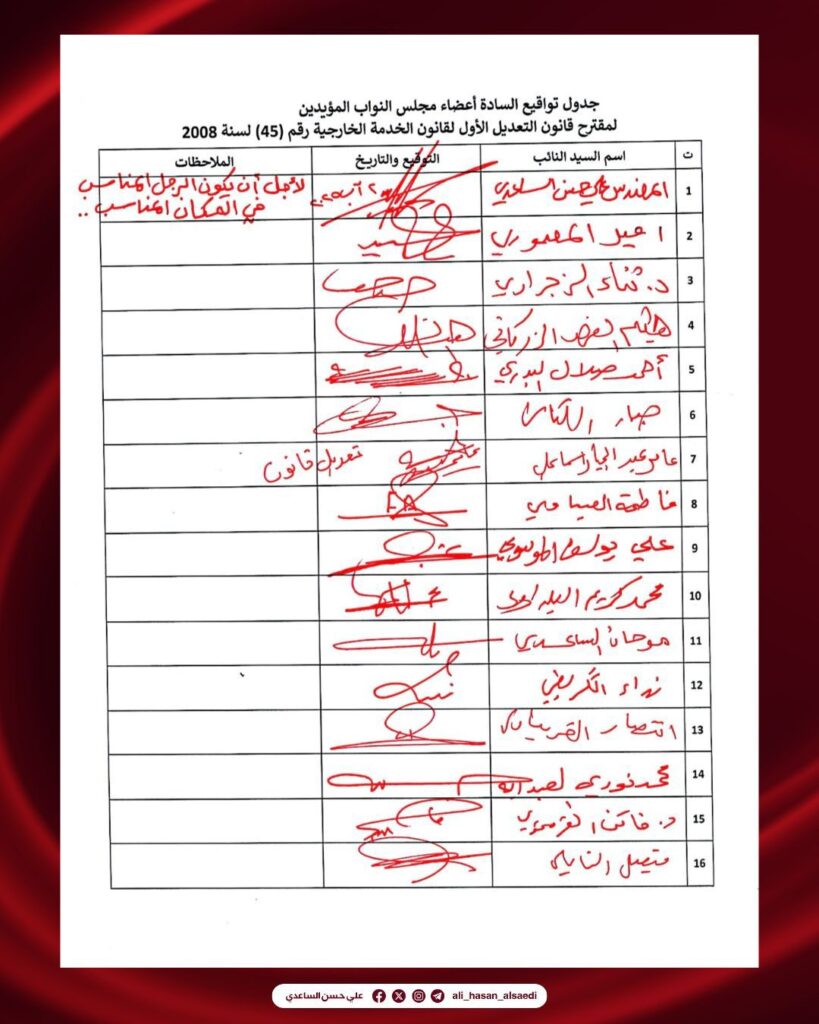 جدول تواقيع السادة أعضاء مجلس النواب المؤيدين
لمقترح قانون التعديل الأول لقانون الخدمة الخارجية رقم (45) لسنة 2008
ت اسم السيد النائب التوقيع والتاريخ الملاحظات
1 المهندس علي حسن الساعدي لأجل أن يكون الرجل المناسب
في المكان المناسب ..
2 المعموري
3 د. ثناء الزجراوي
4 هيثم الزركاني
5 أحمد صلال البدري
6 جبار الكناني
7 عامر عبد الجبار اسماعيل تعديل قانون
8 فاطمة العيساوي
9 علي يوسف الموسوي
10 محمد كريم البلداوي
11 الساعدي
12 نداء الكريطي
13 انتصار
14 محمد نوري
15 د. فاتن القره غولي
16
علي حسن الساعدي ali_hasan_alsaedi